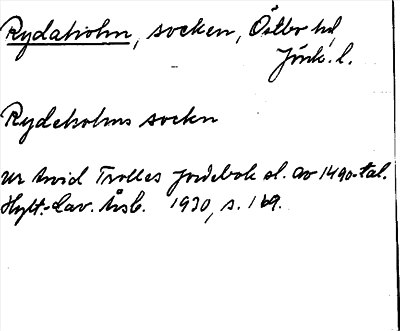 Rydaholm, socken, Östbo hd,
Jönk. l.
Rydeholms sockn
ur Arvid Trolles jordebok sl. av 1490-tal.
Hylt.-Cav. Årsb. 1930, s. 169.